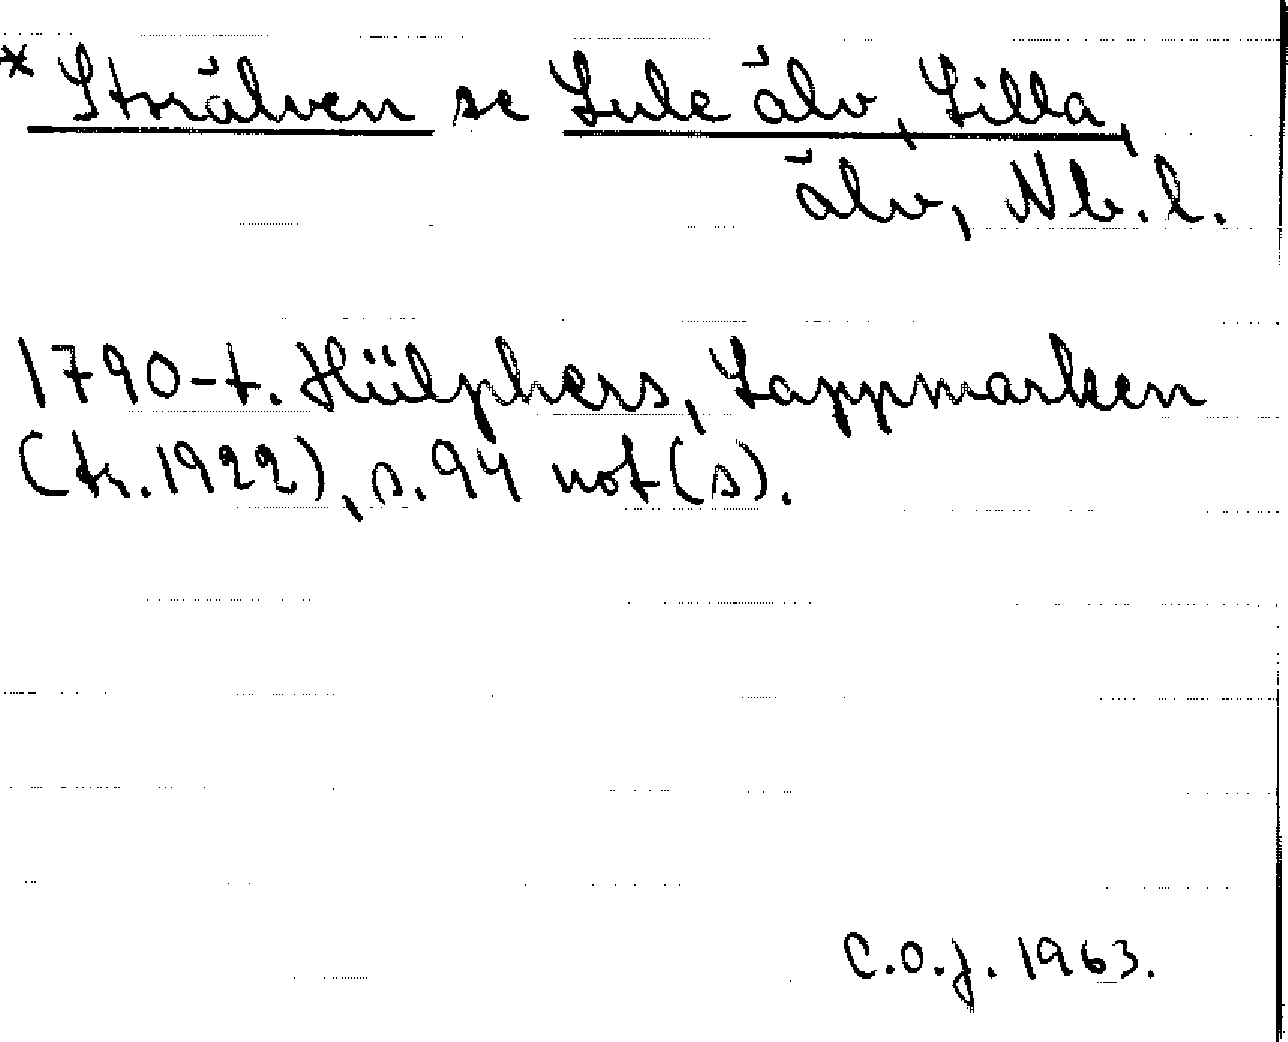 * Storälven se Lule älv, Lilla,
älv, Nb. l.
1790-t. Hülphers, Lappmarken
(tr. 1922), s. 94 not (s).
C.O.J. 1963.